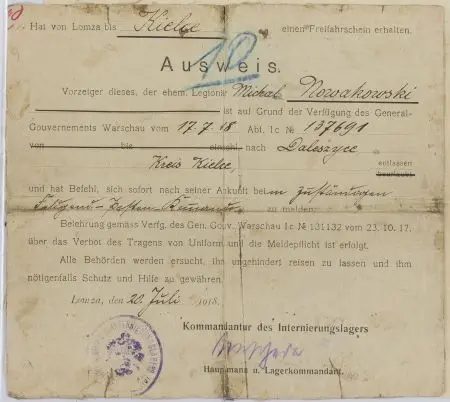 Hat von Lomza bis Kielce einen Freifahrschein erhalten.
10
Ausweis.
Vorzeiger dieses, der ehem. Legionär Michał Nowakowski
ist auf Grund der Verfügung des General-
Gouvernements Warschau vom 17.7.18 Abt. Ic № 137691
von bis einschl. nach Daleszyce
Kreis Kielce, entlassen
beurlaubt
und hat Befehl, sich sofort nach seiner Ankunft beim zuständigen
zu melden.
Belehrung gemäss Verfg. des Gen. Gouv. Warschau Ic № 131132 vom 23.10.17.
über das Verbot des Tragens von Uniform und die Meldepflicht ist erfolgt.
Alle Behörden werden ersucht, ihn ungehindert reisen zu lassen und ihm
nötigenfalls Schutz und Hilfe zu gewähren.
Lomza, den 20. Juli 1918.
Kommandantur des Internierungslagers
Hauptmann u. Lagerkommandant.